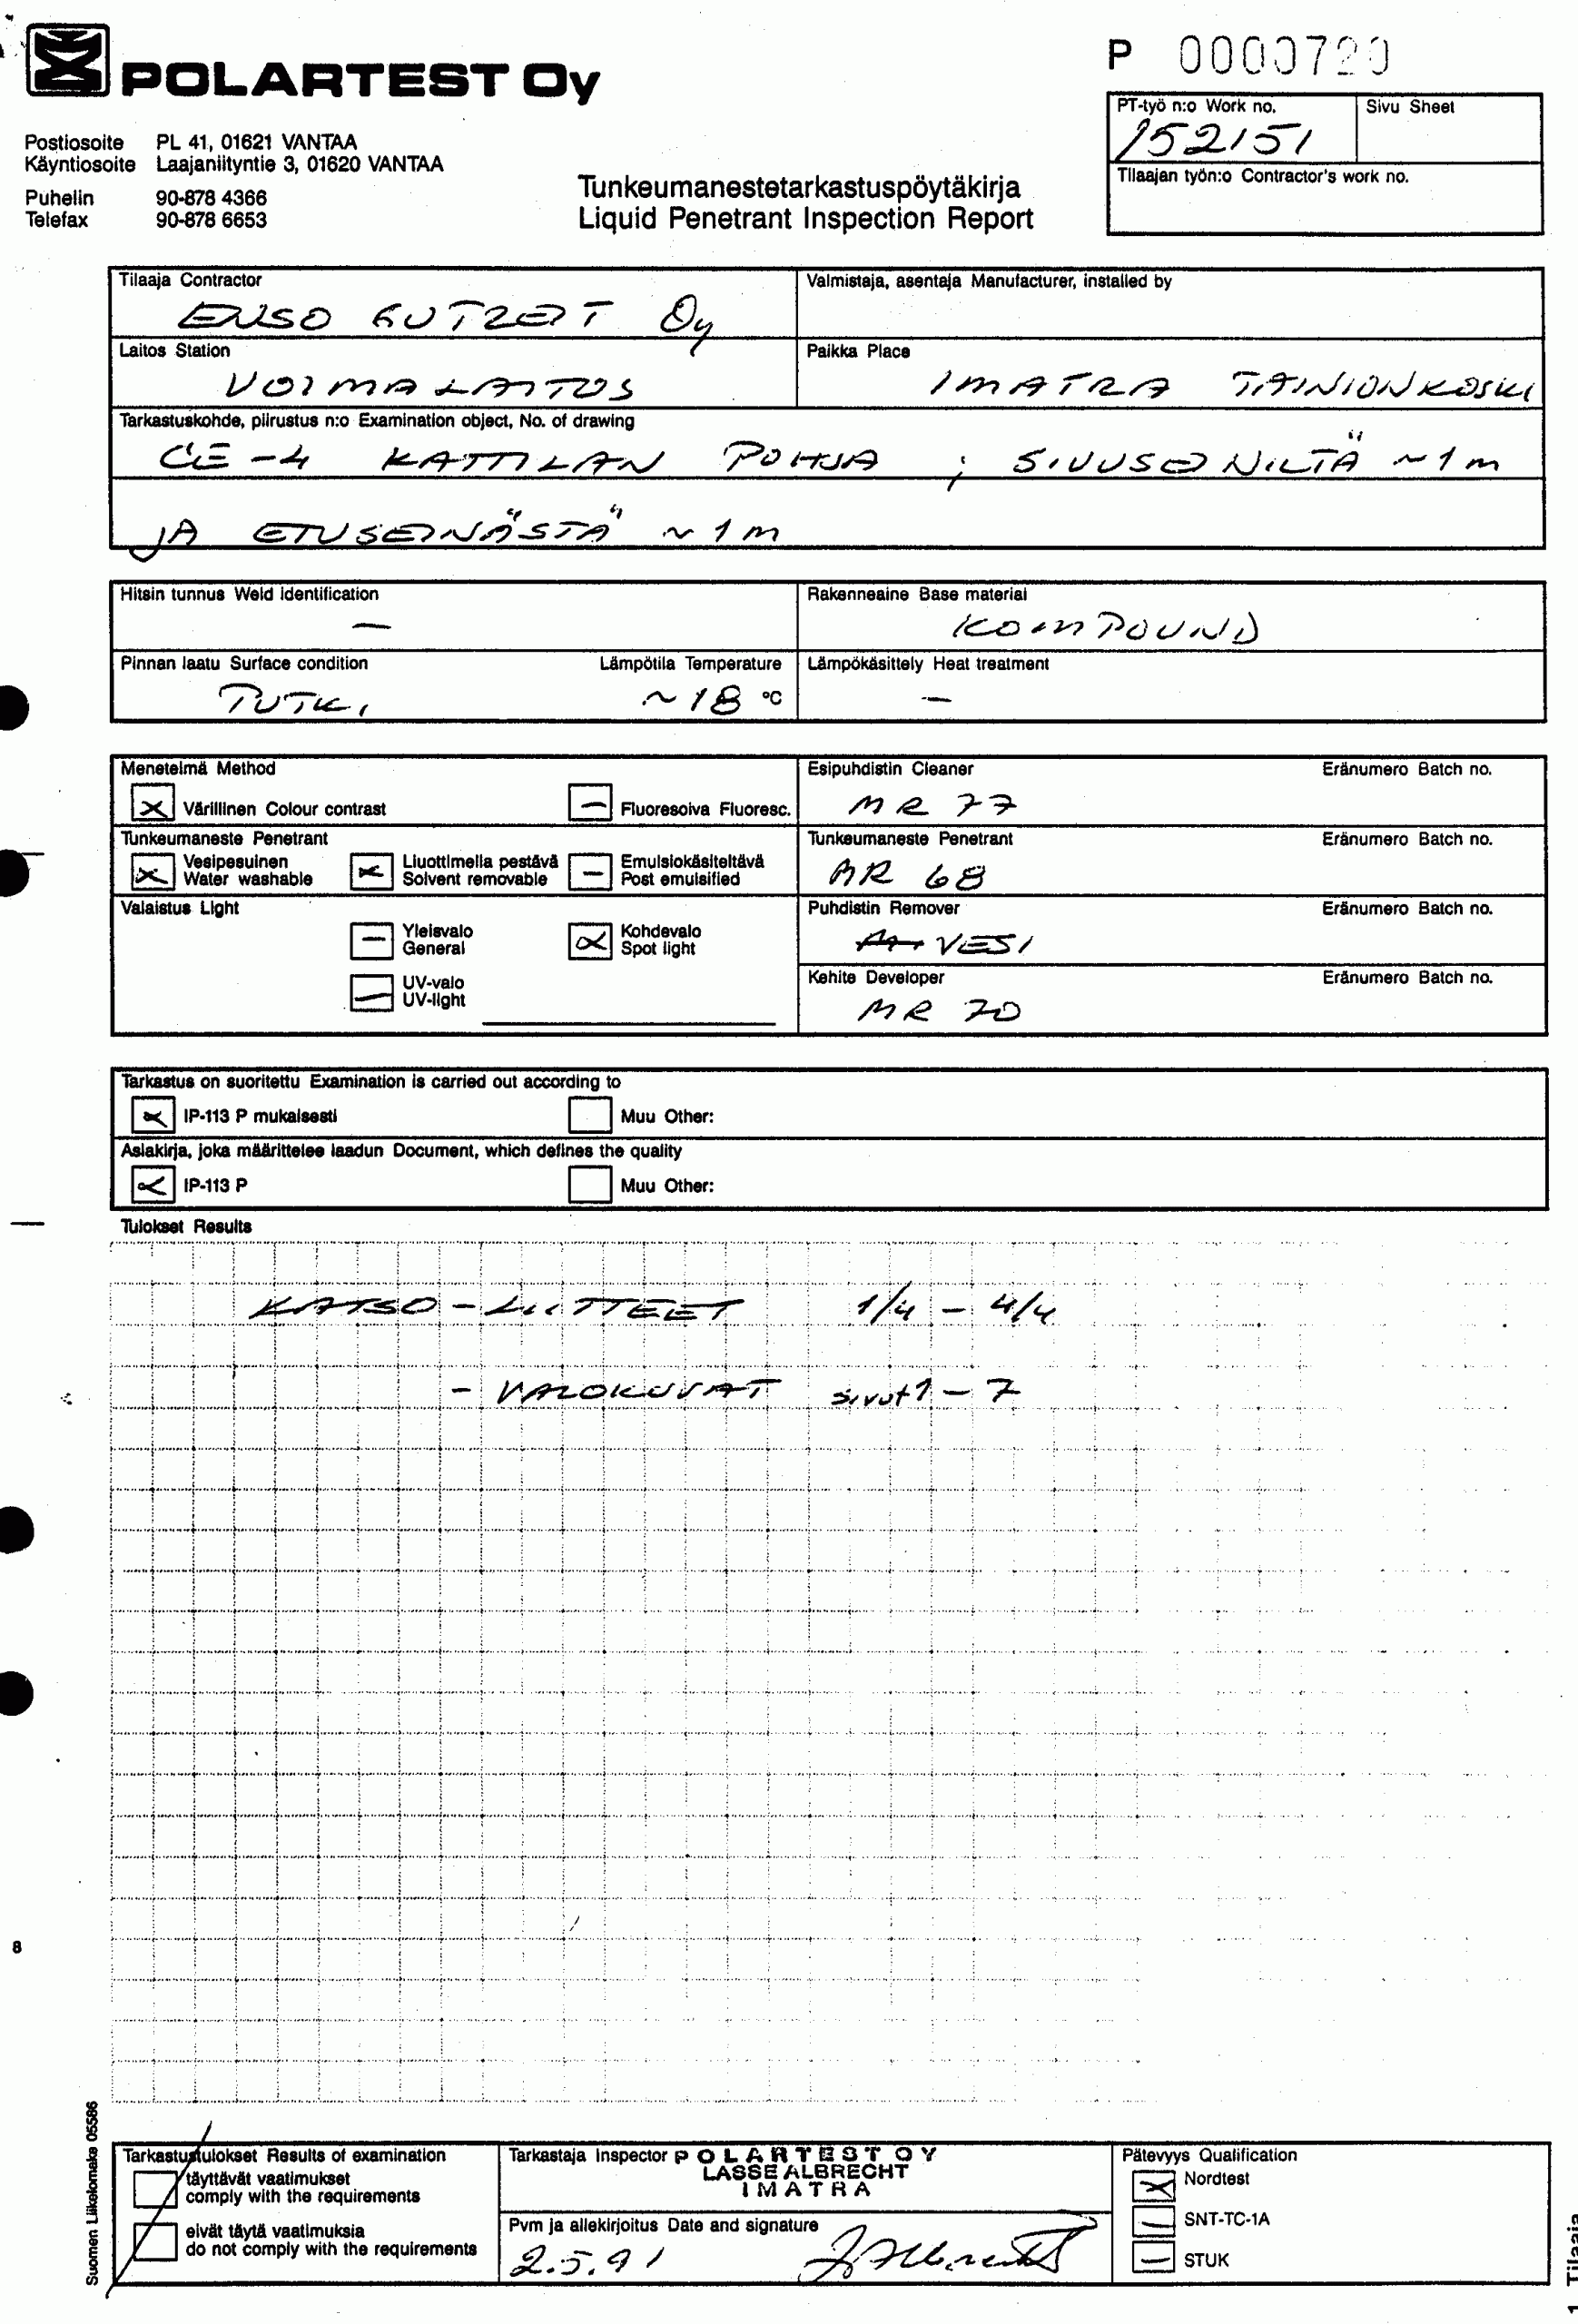 POLARTEST Oy
P 0000720
PT-työ n:o Work no.
Sivu Sheet
152151
Tilaajan työn:o Contractor's work no.
Postiosoite PL 41, 01621 VANTAA
Käyntiosoite Laajaniityntie 3, 01620 VANTAA
Puhelin 90-878 4366
Telefax 90-878 6653
Tunkeumanestetarkastuspöytäkirja
Liquid Penetrant Inspection Report
Tilaaja Contractor
ENSO GUTZEIT Oy
Valmistaja, asentaja Manufacturer, installed by
Laitos Station
VOIMALAITOS
Paikka Place
IMATRA TAINIONKOSKI
Tarkastuskohde, piirustus n:o Examination object, No. of drawing
CE-4 KATTILAN POHJA ; SIVUSEINILTÄ ~1m
JA ETUSEINÄSTÄ ~1m
Hitsin tunnus Weld identification
—
Rakenneaine Base material
KOMPOUND
Pinnan laatu Surface condition
PUTKI
Lämpötila Temperature
~18 °C
Lämpökäsittely Heat treatment
—
Menetelmä Method
X Värillinen Colour contrast
— Fluoresoiva Fluoresc.
Esipuhdistin Cleaner
Eränumero Batch no.
MR 77
Tunkeumaneste Penetrant
X Vesipesuinen Water washable
X Liuottimella pestävä Solvent removable
— Emulsiokäsiteltävä Post emulsified
Tunkeumaneste Penetrant
Eränumero Batch no.
MR 68
Valaistus Light
— Yleisvalo General
X Kohdevalo Spot light
— UV-valo UV-light
Puhdistin Remover
Eränumero Batch no.
VESI
Kehite Developer
Eränumero Batch no.
MR 70
Tarkastus on suoritettu Examination is carried out according to
X IP-113 P mukaisesti
Muu Other:
Asiakirja, joka määrittelee laadun Document, which defines the quality
X IP-113 P
Muu Other:
Tulokset Results
KATSO - LIITTEET 1/4 - 4/4
- VALOKUVAT sivut 1 - 7
8
Suomen Liikelomake 05586
Tarkastustulokset Results of examination
täyttävät vaatimukset
comply with the requirements
eivät täytä vaatimuksia
do not comply with the requirements
Tarkastaja Inspector
POLARTEST OY
LASSE ALBRECHT
IMATRA
Pvm ja allekirjoitus Date and signature
2.5.91 LAlbrecht
Pätevyys Qualification
X Nordtest
— SNT-TC-1A
— STUK
1 Tilaaja